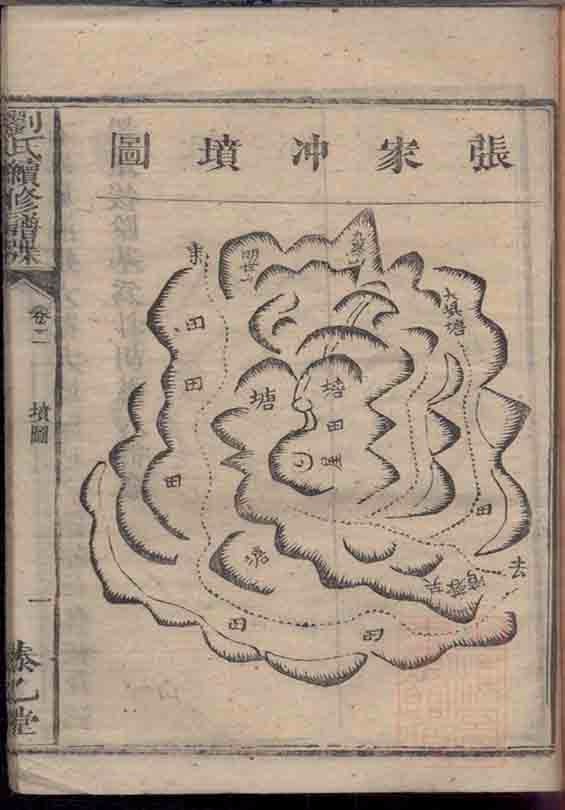 張家冲墳圖
劉氏續修譜
卷二
墳圖
一
乙堂
明堂
大垻塘
來
田
田
田
塘
塘
田
屋
塘
田
田
田
去